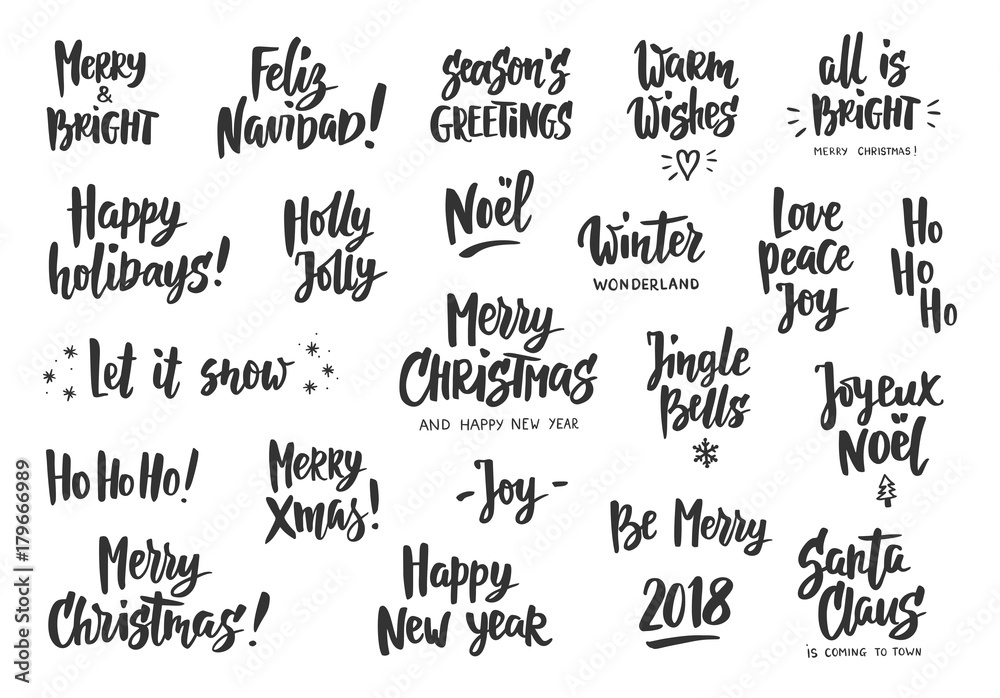 Merry
&
BRIGHT
Feliz
Navidad!
SEASON'S
GREETINGS
Warm
Wishes
all is
BRIGHT
MERRY CHRISTMAS!
Happy
holidays!
Holly
Jolly
Noël
Winter
WONDERLAND
Love
peace
Joy
Ho
Ho
Ho
Let it snow
Merry
CHRISTMAS
AND HAPPY NEW YEAR
Jingle
Bells
Joyeux
NOËL
Ho Ho Ho!
Merry
Xmas!
-Joy-
Be Merry
Merry
Christmas!
Happy
New year
2018
Santa
Claus
IS COMING TO TOWN
Adobe Stock | #179666989